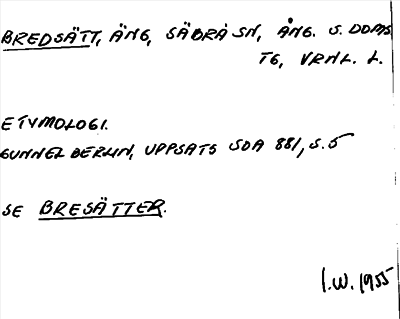 BREDSÄTT, ÄNG, SÄBRÅ SN, ÅNG. S. DOMS
TG, VRNL. L.
ETYMOLOGI.
GUNNEL BERLIN, UPPSATS SDA 881, S. 5
SE BRESÄTTER.
I.W. 1955